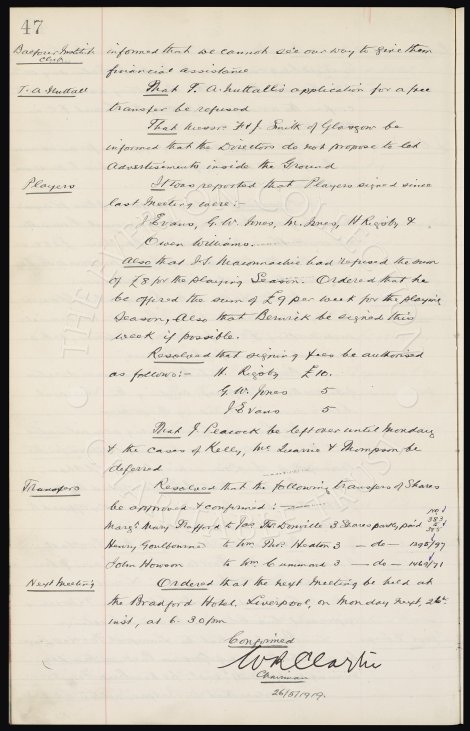 47
Balfour Institute informed that we cannot see our way to give them
Club. financial assistance
T. A. Nuttall That T. A. Nuttall's application for a free
transfer be refused
That Messrs F & J. Smith of Glasgow be
informed that the Directors do not propose to let
Advertisements inside the Ground
Players It was reported that Players signed since
last Meeting were:
J Evans, G. W. Jones, M. Jones, H Rigsby &
Owen Williams.
Also that J. S. Maconnachie had refused the sum
of £8 for the playing Season. Ordered that he
be offered the sum of £9 per week for the playing
Season, Also that Berwick be signed this
week if possible.
Resolved that signing fees be authorised
as follows:- H. Rigsby £10.
G. W. Jones 5
J Evans 5
That J. Peacock be left over until Monday
& the cases of Kelly, Mc Quarrie & Thompson be
deferred
Transfers Resolved that the following transfers of Shares
be approved & confirmed:
383
385
Margt Mary Stafford to Jas. 3 Shares partly paid
Henry Goulbourne to Wm Thos. Heaton 3 - do - 1295/97
John Howson to Wm C. 3 - do - 1469/71
Next Meeting Ordered that the next Meeting be held at
the Bradford Hotel, Liverpool, on Monday next, 26th
inst, at 6.30pm
Confirmed
W R Clayton
Chairman
26/5/1919.
THE EVERTON COLLECTION